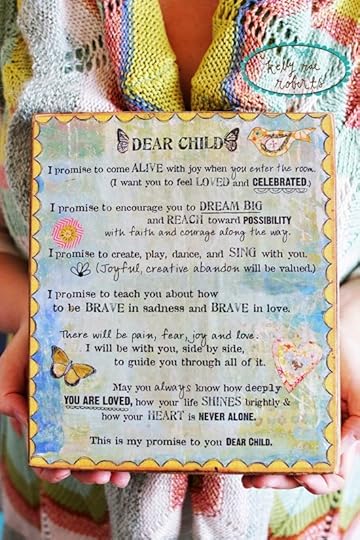 kelly rae
roberts
DEAR CHILD
I promise to come ALIVE with joy when you enter the room.
(I want you to feel LOVED and CELEBRATED.)
I promise to encourage you to DREAM BIG
and REACH toward POSSIBILITY
with faith and courage along the way.
I promise to create, play, dance, and SING with you.
(Joyful, creative abandon will be valued.)
I promise to teach you about how
to be BRAVE in sadness and BRAVE in love.
There will be pain, fear, joy and love.
I will be with you, side by side,
to guide you through all of it.
May you always know how deeply
YOU ARE LOVED, how your life SHINES brightly &
how your HEART is NEVER ALONE.
This is my promise to you DEAR CHILD.